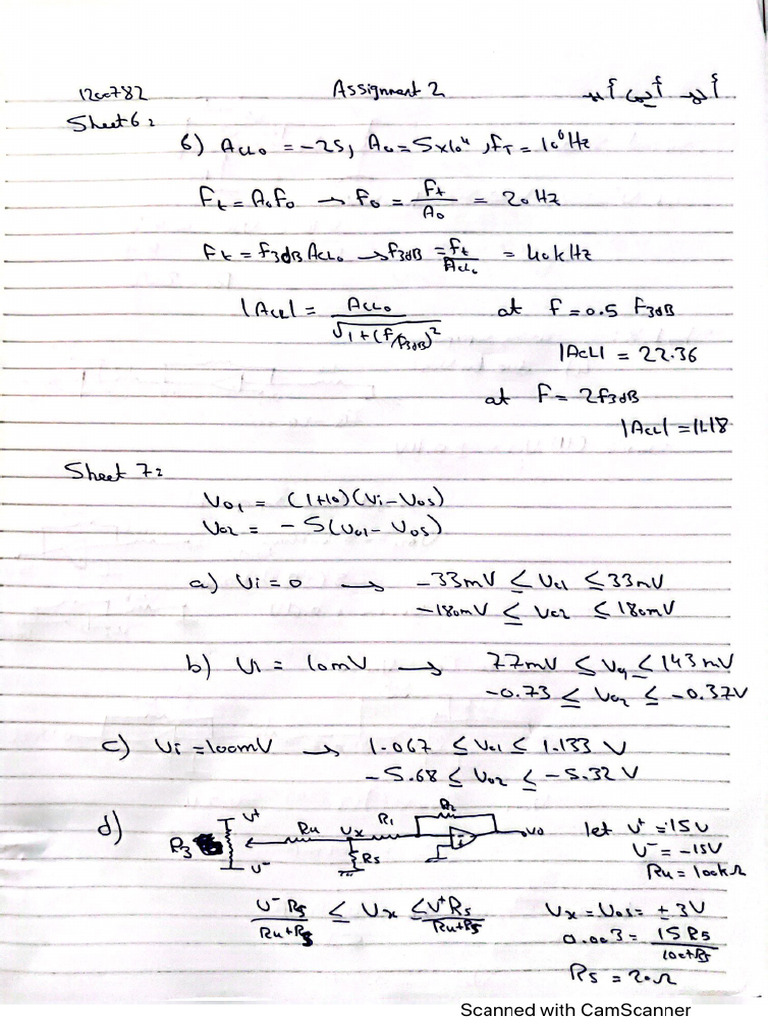 1200782 Assignment 2
Sheet 6:
6) ACLo = -25, Ao = 5x10⁴, fT = 10⁶ Hz
Ft = Aofo → fo = Ft/Ao = 20 Hz
Ft = f3dB ACLo → f3dB = ft/ACLo = 40 kHz
|ACL| = ACLo/√(1+(f/f3dB)²) at f = 0.5 F3dB
|ACL| = 22.36
at F = 2f3dB
|ACL| = 11.18
Sheet 7:
Vo1 = (1+10)(Vi-Vos)
Vo2 = -5(Vo1-Vos)
a) Vi = 0 → -33mV ≤ Vo1 ≤ 33mV
-180mV ≤ Vo2 ≤ 180mV
b) Vi = 10mV → 77mV ≤ Vo1 ≤ 143mV
-0.73 ≤ Vo2 ≤ -0.37V
c) Vi = 100mV → 1.067 ≤ Vo1 ≤ 1.133 V
-5.68 ≤ Vo2 ≤ -5.32 V
d) R3 V⁺ V⁻ R4 Vx R5 R1 R2 Vo let V⁺ = 15V
V⁻ = -15V
R4 = 100kΩ
V⁻R5/R4+R5 ≤ Vx ≤ V⁺R5/R4+R5 Vx = Vos = ±3V
0.003 = 15R5/100+R5
R5 = 20Ω
Scanned with CamScanner